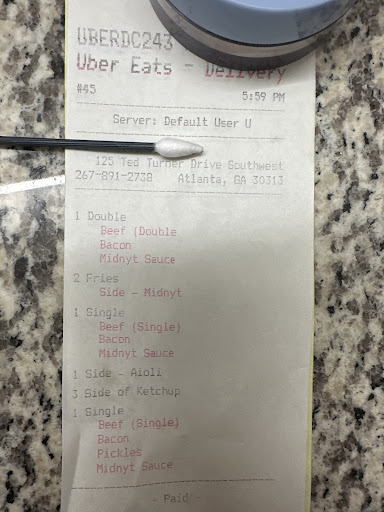 UBERDC243
Uber Eats - Delivery
#45 5:59 PM
Server: Default User U
125 Ted Turner Drive Southwest
267-891-2738 Atlanta, GA 30313
1 Double
Beef (Double
Bacon
Midnyt Sauce
2 Fries
Side - Midnyt
1 Single
Beef (Single)
Bacon
Midnyt Sauce
1 Side - Aioli
3 Side of Ketchup
1 Single
Beef (Single)
Bacon
Pickles
Midnyt Sauce
- Paid -